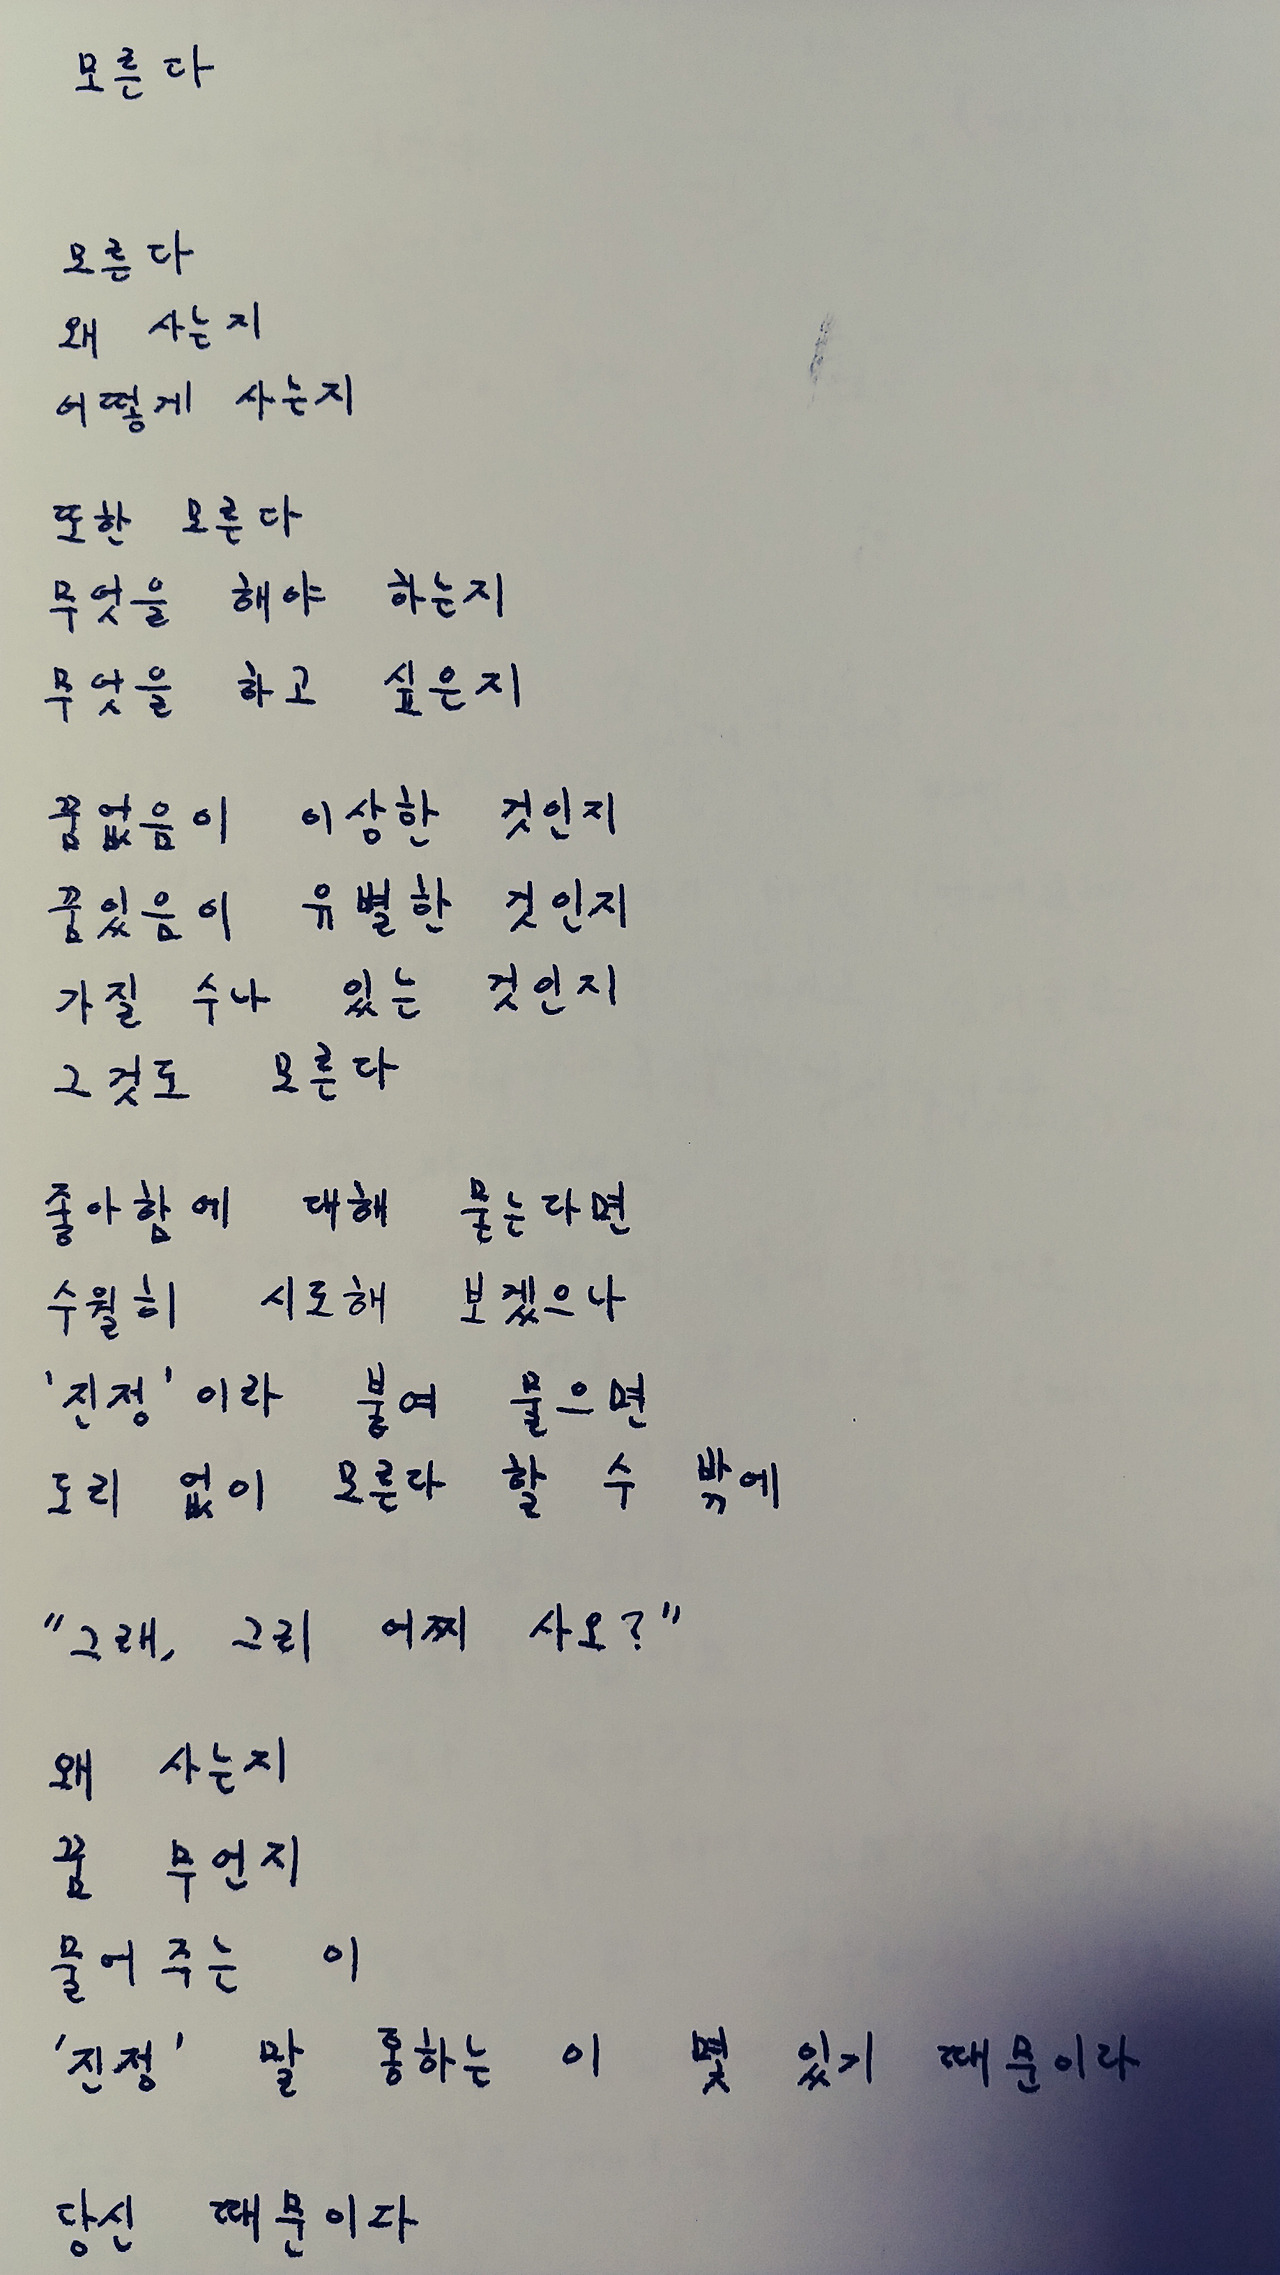 모른다
모른다
왜 사는지
어떻게 사는지
또한 모른다
무엇을 해야 하는지
무엇을 하고 싶은지
꿈없음이 이상한 것인지
꿈있음이 유별한 것인지
가질 수나 있는 것인지
그것도 모른다
좋아함에 대해 묻는다면
수월히 시도해 보겠으나
'진정'이라 붙여 물으면
도리 없이 모른다 할 수 밖에
"그래, 그리 어찌 사오?"
왜 사는지
꿈 무언지
물어주는 이
'진정' 말 통하는 이 몇 있기 때문이라
당신 때문이다